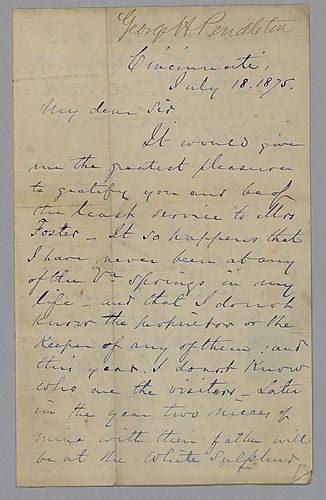 George H Pendleton
Cincinnati,
July 18. 1875.
My dear Sir
It would give
me the greatest pleasure
to gratify you and be of
the least service to Mrs
Foster – It so happens that
I have never been at any
of the Va Springs in my
life – and that I do not
know the proprietor or the
Keeper of any of them; and
this year I do not know
who are the visitors – Later
in the year two nieces of
mine with their father will
be at the White Sulphur